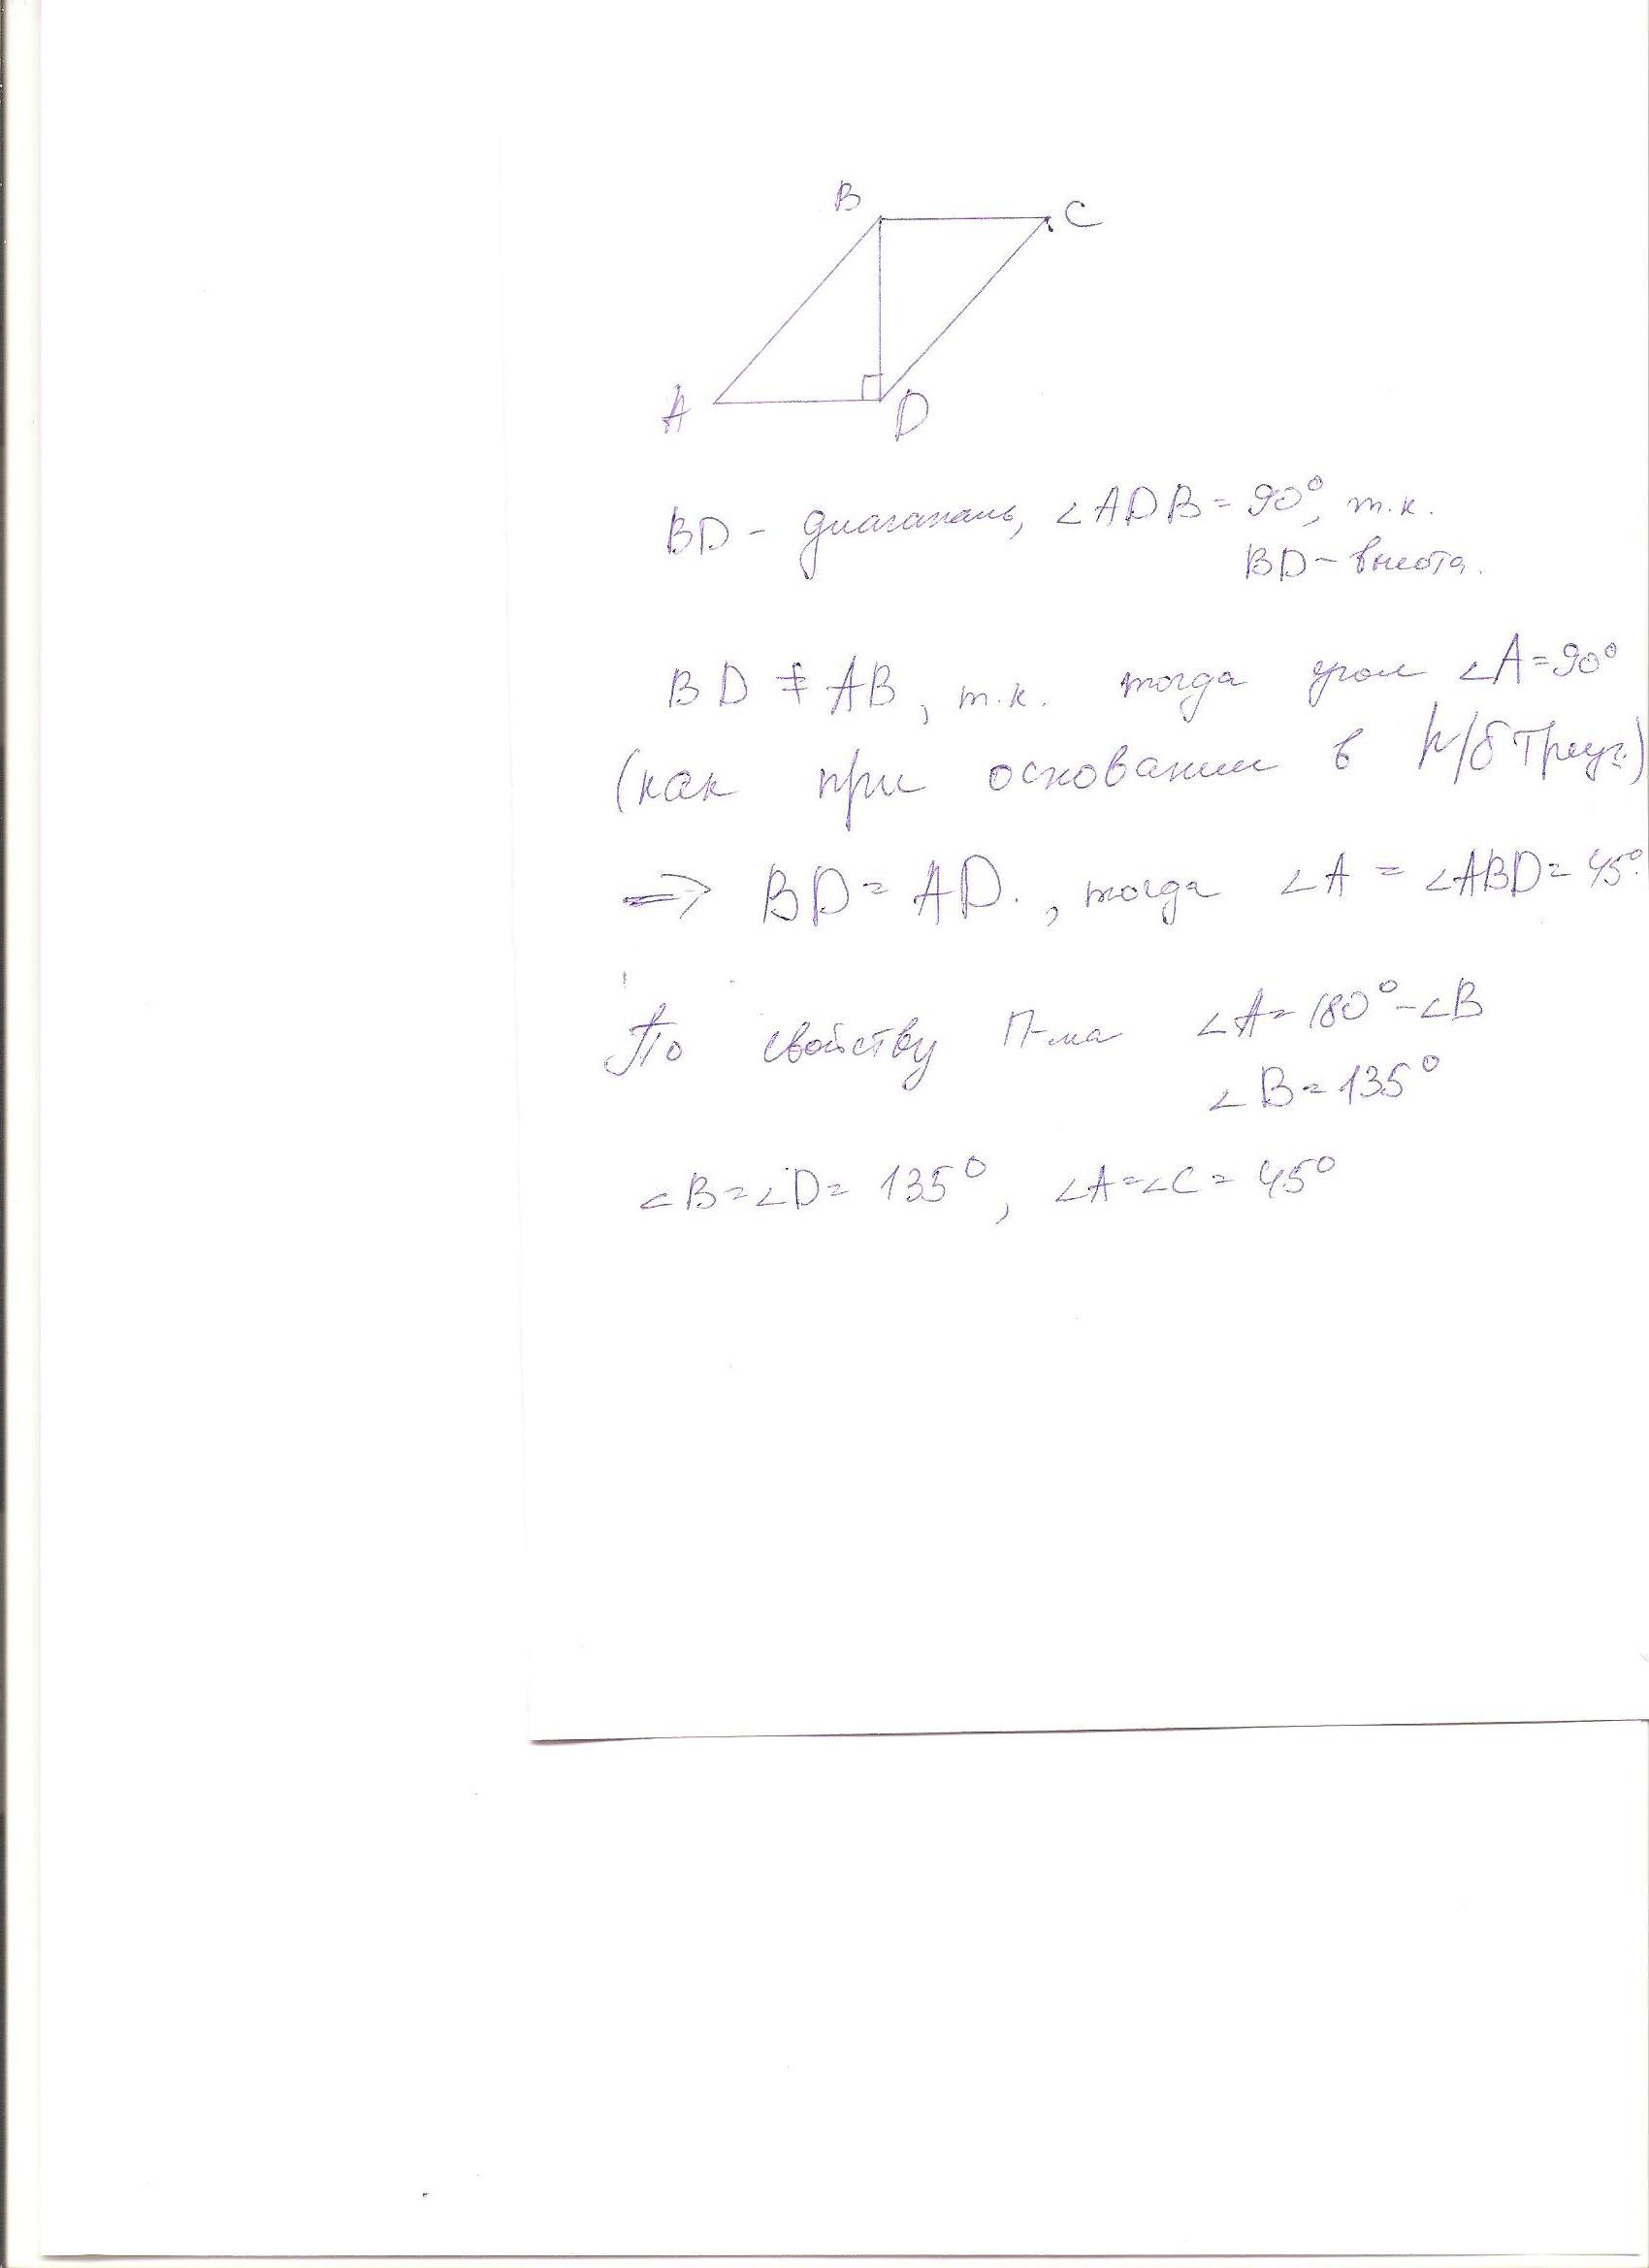 B C
A D
BD - диагональ, ∠ADB = 90°, т.к.
BD - высота.
BD ≠ AB, т.к. тогда угол ∠A = 90°
(как при основании в р/б треуг.)
⇒ BD = AD., тогда ∠A = ∠ABD = 45°.
По свойству п-ма ∠A = 180° - ∠B
∠B = 135°
∠B = ∠D = 135°, ∠A = ∠C = 45°